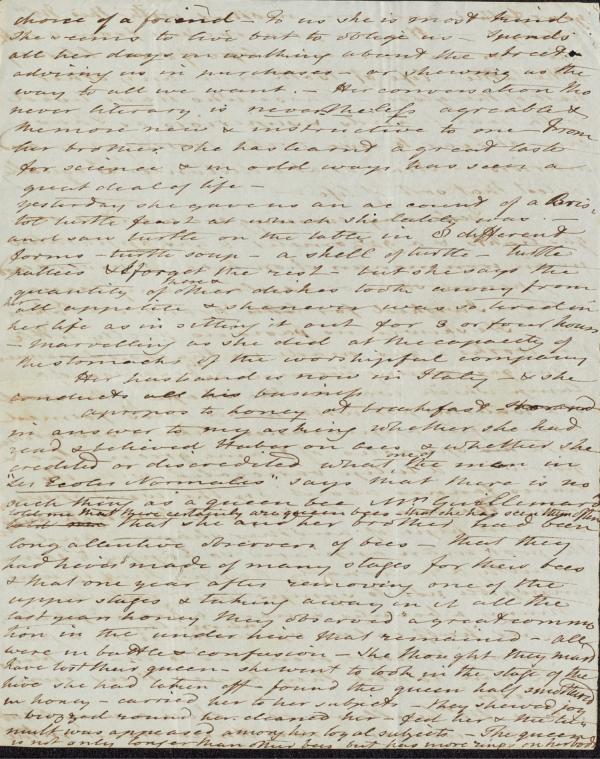 choice of a friend – To us she is most kind
She seems to live but to oblige us – spends
all her days in walking about the streets
advising us in purchases – or shewing us the
way to all we want. – Her conversation tho
never literary is nevertheless agreable &
the more new & instructive to one – From
her brother she has learnt a great taste
for science & in odd ways has seen a
great deal of life –
yesterday she gave us an account of a Bris-
tol turtle feast at which she lately was –
and saw turtle on the table in 5 different
forms – turtle soup – a shell of turtle – turtle
patties & I forget the rest – but she says the
quantity of these & other dishes took away from
her all appetite & she never was so tired in
her life as in sitting it out for 3 or four hours
– marvelling as she did at the capacity of
the stomachs of the worshipful company
Her husband is now in Italy – & she
conducts all his business
apropos to honey at breakfast
in answer to my asking whether she had
read & believed Huber on bees & whether she
credited or discredited what one of the men in
"les Ecoles Normales" says that there is no
such thing as a queen bee Mrs
told me that there certainly are queen bees that she has seen them often
that she and her brother had been
long attentive observers of bees – that they
had hives made of many stages for their bees
& that one year after removing one of the
upper stages & taking away in it all the
last years honey they observed a great commo
tion in the under hive that remained – all
were in bustle & confusion – She thought they must
have lost their queen she went to look in the stage of the
hive she had taken off – found the queen half smothered
in honey – carried her to her subjects – they shewed joy
– buzzed round her cleaned her – fed her & the tu-
mult was appeased among her loyal subjects – The queen
is not only longer than other bees but has more rings on her body